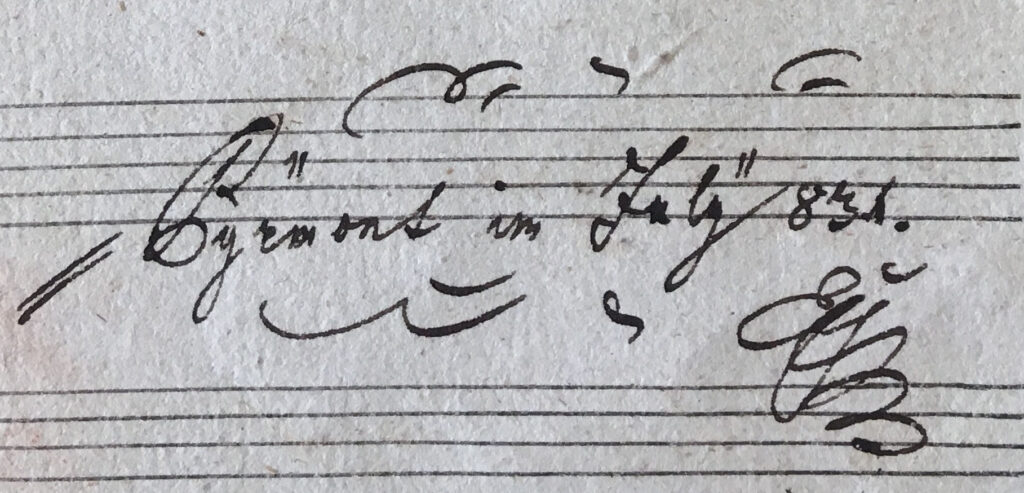 Pÿrmont im Julÿ 831.